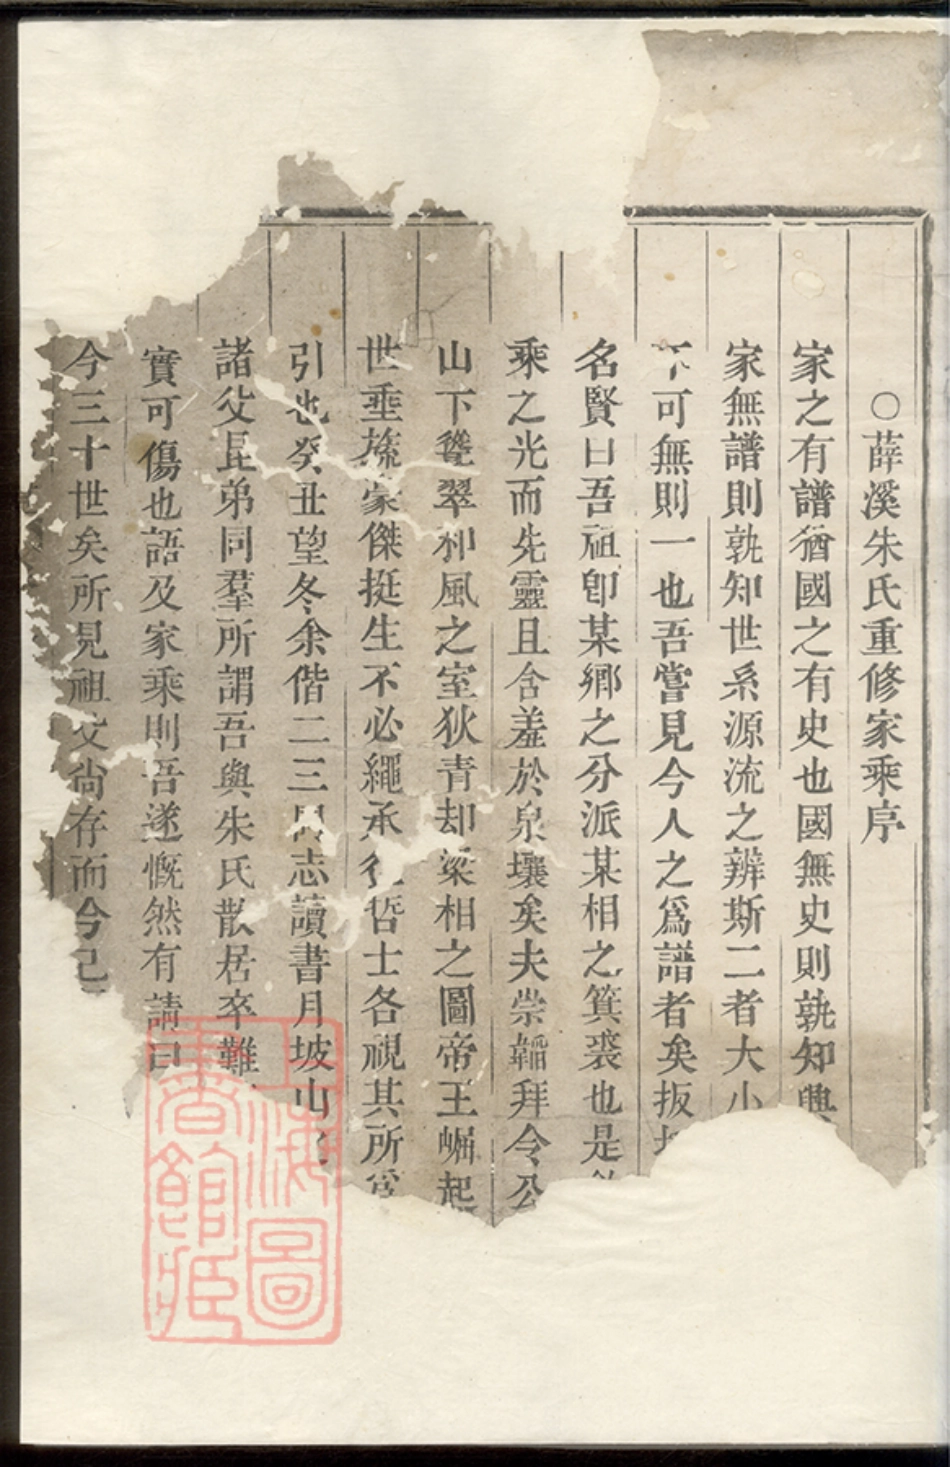 ○薛溪朱氏重修家乘序
家之有譜猶國之有史也國無史則孰知興
家無譜則孰知世系源流之辨斯二者大小
不可無則一也吾嘗見今人之爲譜者矣扳
名賢曰吾祖卽某鄉之分派某相之箕裘也是
乘之光而先靈且含羞於泉壤矣夫崇韜拜令公
山下聳翠和風之室狄青却梁相之圖帝王崛起
世垂旒豪傑挺生不必繩承哲士各視其所爲
引也癸丑望冬余偕二三同志讀書月坡山
諸父昆弟同羣所謂吾與朱氏散居卒難
實可傷也語及家乘則吾遂慨然有請曰
今三十世矣所見祖父尙存而今已
上海圖書館藏